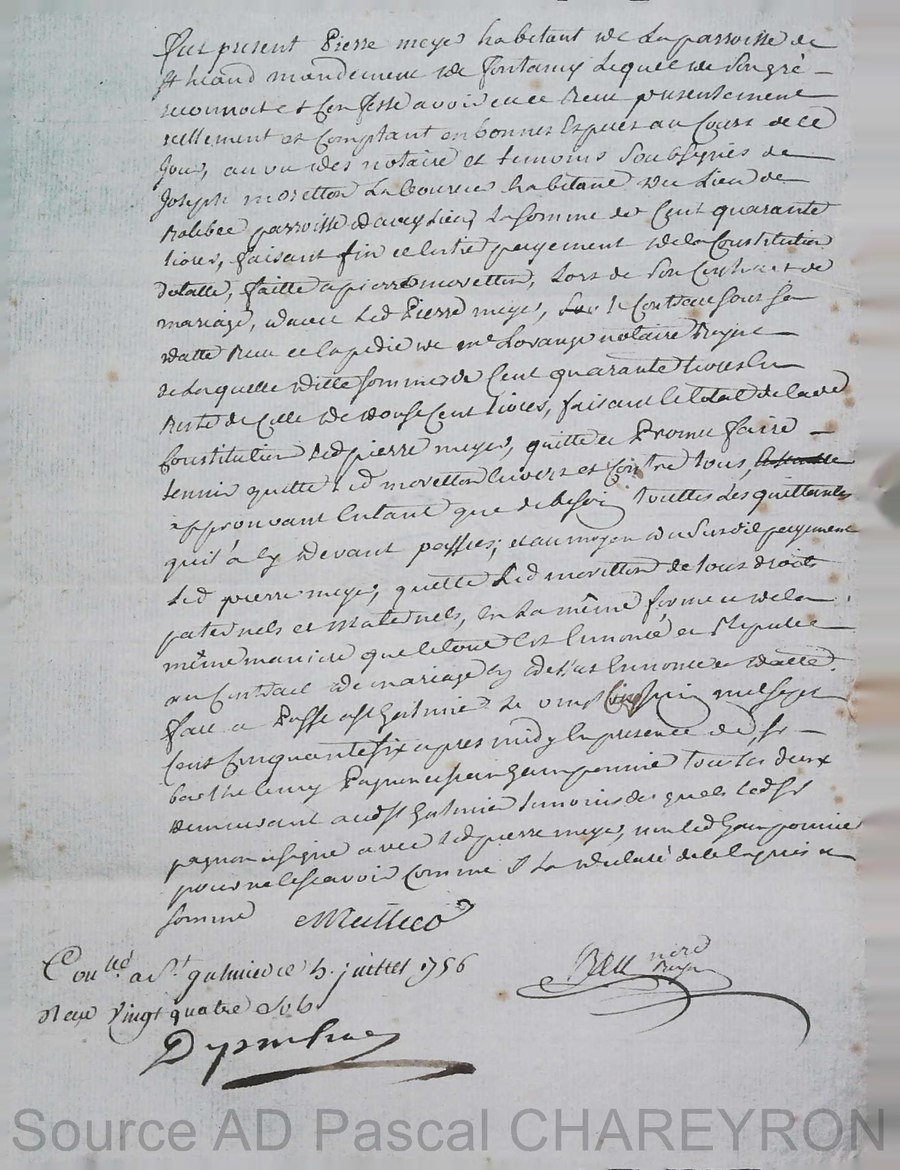 Fut present Pierre meyer habitant de La parroisse de
st heand mandement de fontanes Lequel de Son gré
reconnoit et Confesse avoir eu ce Receu presentement
reellement et Comptant en bonnes Especes au Cours de Ce
Jour, au vu des notaire et temoins Soubsignés de
Joseph moretton Laboureur habitant du Lieu de
parroisse daveyzieu, La Somme de Cent quarante
livres, faisant fin et Entier payement de la Constitution
dotalle, faitte a pierre moretton, Lors de Son Contrait de
mariage, avec Led Pierre meyer, Sur le Contrat Sous Sa
datte Receu et Expedié me notaire Royal
de Laquelle ditte Somme de Cent quarante livres En
Reste de Celle de douse Cent livres, faisant le total de lade
Constitution Led pierre meyer, quitte et Promet faire
tenir quitte led moretton Envers et Contre tous,
approuvant Entant que de besoin touttes Les quittances
qu'il a Cy devant passées; et au moyen du Susdit payement
Led pierre meyer, quitte Led moretton de tous droits
paternels et Maternels, En La même forme et de la
même maniere que le tout Est Enoncé et Stipulé
au Contrait de mariage Cy dessus Enoncé et datté.
fait et Passé a st Galmier Le vingt Cinq Juin mil Sept
Cent Cinquante Six apres midy En presence de, Sr
barthelemy Pagnon et Jean pommier tous les deux
demeurant aud st Galmier temoins des quels Led Sr
pagnon a Signé avec Led pierre meyer, non led Jean pommier
pour ne le Scavoir Comme Il La declaré de ce Enquis et
Sommé
Conlé a St. galmier ce 5. juillet 1756
Reçu vingt quatre sols
nore
Royal
Source AD Pascal CHAREYRON